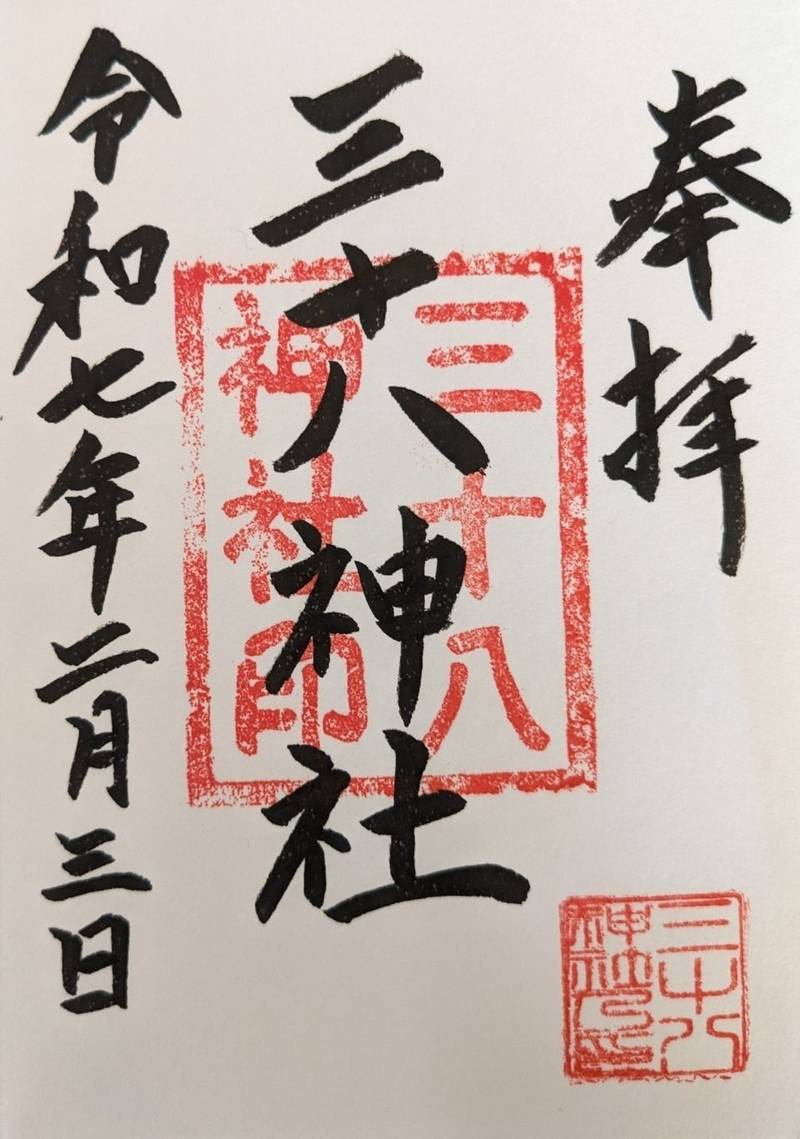 奉拝
三十八神社
令和七年二月三日
三十八
神社印
三十八
神社印